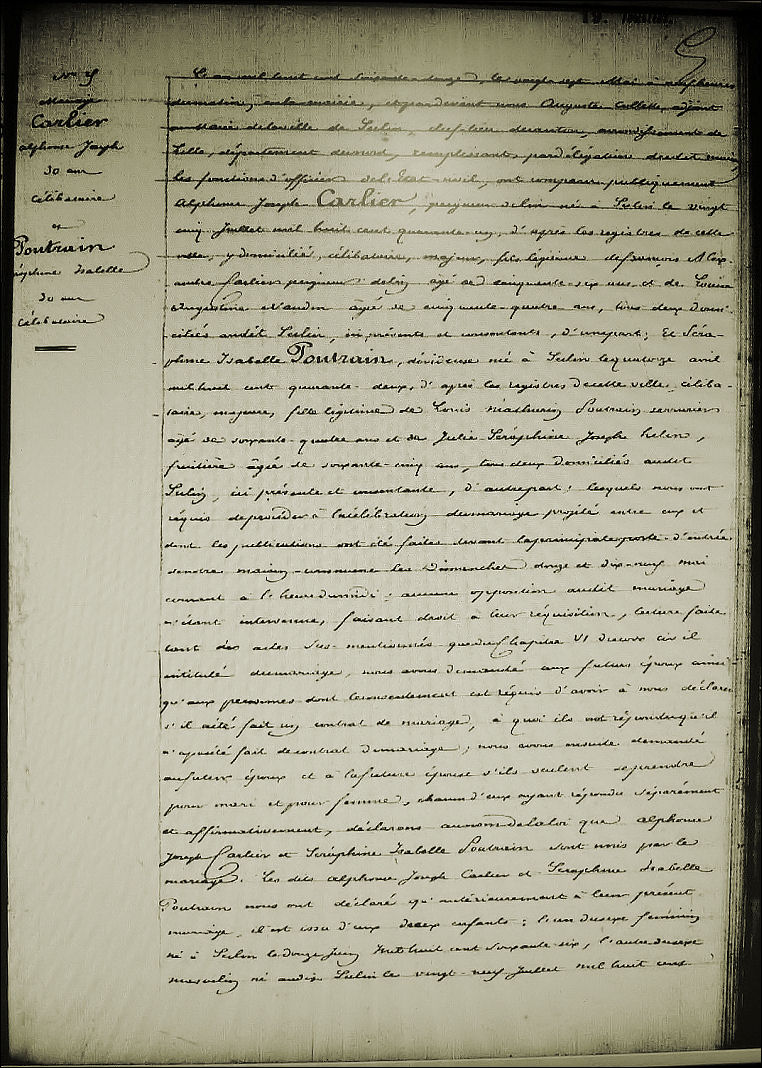 Mariage
Carlier
alphonse Joseph
30 ans
Célibataire
et
Poutrain
Séraphine Isabelle
30 ans
Célibataire
L'an mil huit cent soixante-douze, le vingt sept Mai à neuf heures
du matin, en la mairie, et par devant nous Auguste Collette, adjoint
au Maire de la ville de Seclin, chef-lieu de canton, arrondissement de
Lille, département du nord, remplissant, par délégation dudit maire
les fonctions d'officier de l'État-civil, ont comparu publiquement
Alphonse Joseph Carlier, peigneur de lin né à Seclin le vingt
cinq Juillet mil huit cent quarante-un, d'après les registres de cette
ville, y domicilié, célibataire, majeur, fils légitime de François Alex-
andre Carlier peigneur de lin âgé de cinquante-six ans, et de Louise
Augustine Naudin âgée de cinquante-quatre ans, tous deux domi-
ciliés audit Seclin, ici présents et consentants, d'une part; Et Séra-
phine Isabelle Poutrain, dévideuse née à Seclin le quatorze avril
mil huit cent quarante-deux, d'après les registres de cette ville, céliba-
taire, majeure, fille légitime de Louis Mathurin Poutrain serrurier
âgé de soixante-quatre ans et de Julie Séraphine Joseph Helin,
fruitière âgée de soixante-cinq ans, tous deux domiciliés audit
Seclin, ici présents et consentants, d'autre part; lesquels nous ont
requis de procéder à la célébration du mariage projeté entre eux et
dont les publications ont été faites devant la principale porte d'entrée
de notre maison-commune les Dimanches douze et dix-neuf mai
courant à l'heure de midi; aucune opposition audit mariage
n'étant intervenue, faisant droit à leur réquisition, lecture faite
tant des actes sus-mentionnés que du Chapitre VI du code civil
intitulé du mariage, nous avons demandé aux futurs époux ainsi
qu'aux personnes dont le consentement est requis d'avoir à nous déclarer
s'il a été fait un contrat de mariage, à quoi ils ont répondu qu'il
n'a pas été fait de contrat de mariage; nous avons ensuite demandé
au futur époux et à la future épouse s'ils veulent se prendre
pour mari et pour femme, chacun d'eux ayant répondu séparément
et affirmativement, déclarons au nom de la loi que alphonse
Joseph Carlier et Séraphine Isabelle Poutrain sont unis par le
mariage. Les dits alphonse Joseph Carlier et Séraphine Isabelle
Poutrain nous ont déclaré qu'antérieurement à leur présent
mariage, il est issu d'eux deux enfants: l'un du sexe féminin
né à Seclin le douze Juin mil huit cent soixante-six, l'autre du sexe
masculin né audit Seclin le vingt-neuf Juillet mil huit cent